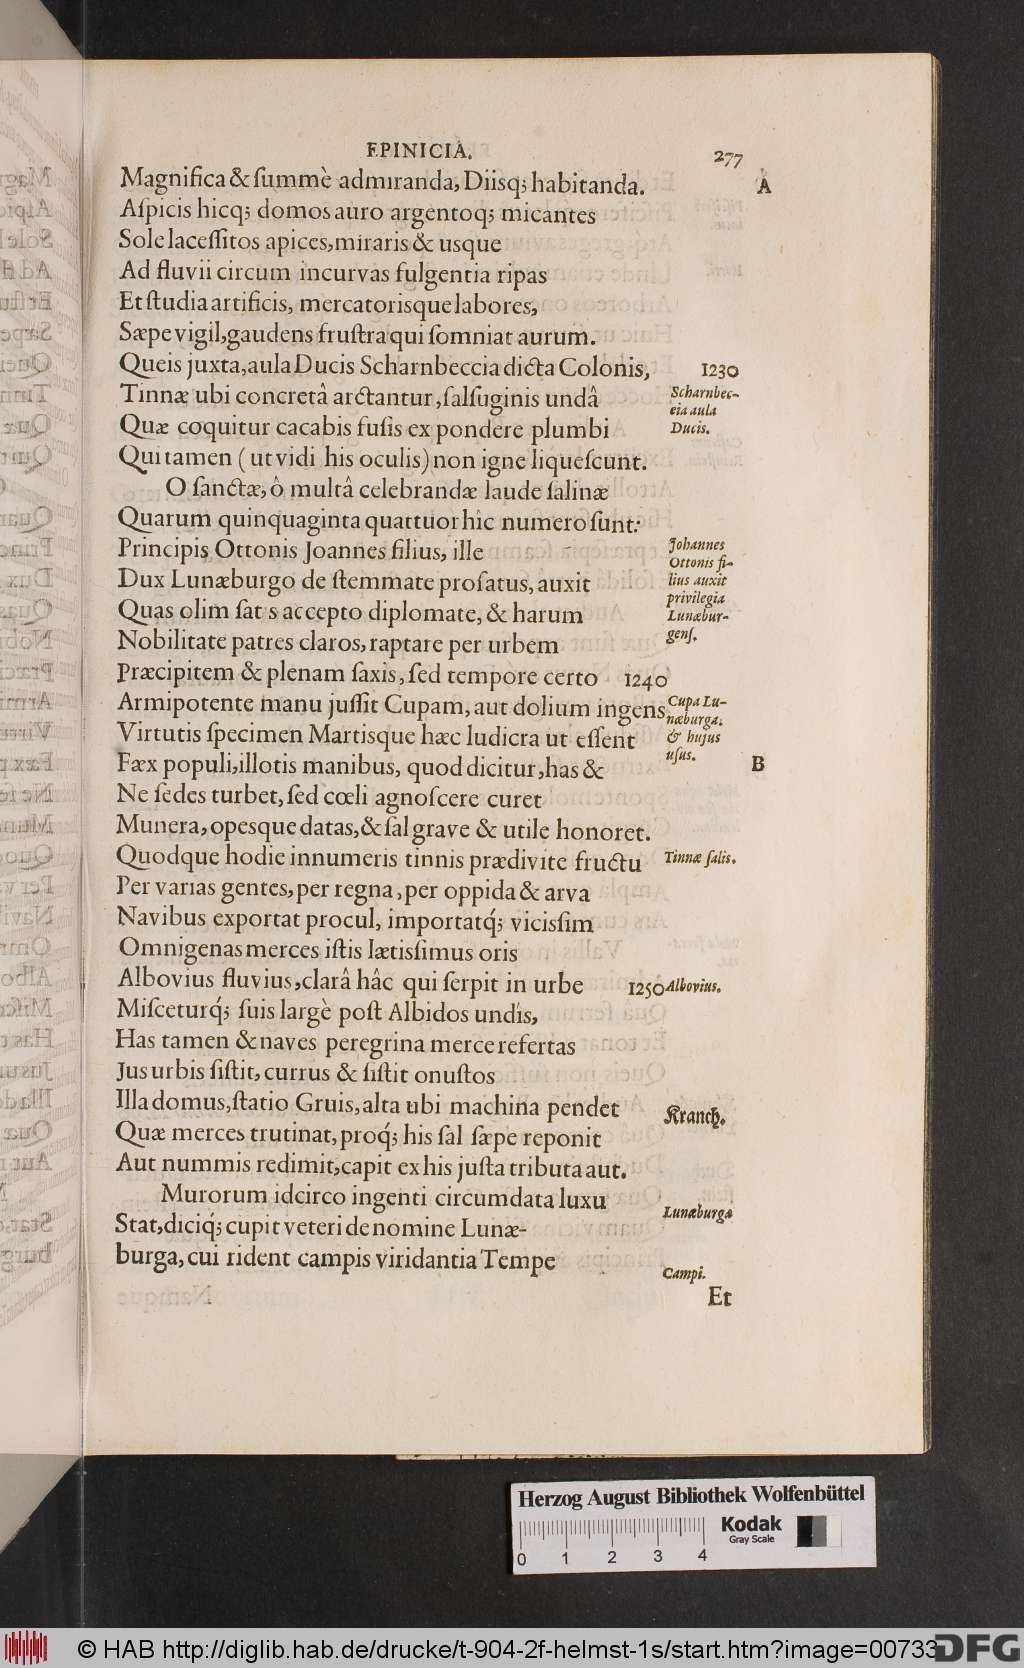 EPINICIA. 277
Magnifica & ſummè admiranda, Diisq; habitanda. A
Aſpicis hicq; domos auro argentoq; micantes
Sole laceſſitos apices, miraris & usque
Ad fluvii circum incurvas fulgentia ripas
Et ſtudia artificis, mercatorisque labores,
Sæpe vigil, gaudens fruſtra qui ſomniat aurum.
Queis juxta, aula Ducis Scharnbeccia dicta Colonis, 1230
Tinnæ ubi concretâ arctantur, ſalſuginis undâ
Scharnbec-
cia aula
Ducis.
Quæ coquitur cacabis fuſis ex pondere plumbi
Qui tamen (ut vidi his oculis) non igne liqueſcunt.
O ſanctæ, ô multâ celebrandæ laude ſalinæ
Quarum quinquaginta quattuor hîc numero ſunt:
Principis Ottonis Joannes filius, ille
Johannes
Ottonis fi-
lius auxit
privilegia
Lunæbur-
genſ.
Dux Lunæburgo de ſtemmate proſatus, auxit
Quas olim ſat s accepto diplomate, & harum
Nobilitate patres claros, raptare per urbem
Præcipitem & plenam ſaxis, ſed tempore certo 1240
Armipotente manu juſſit Cupam, aut dolium ingens
Cupa Lu-
næburga.
& hujus
uſus.
Virtutis ſpecimen Martisque hæc ludicra ut eſſent
Fæx populi, illotis manibus, quod dicitur, has & B
Ne ſedes turbet, ſed cœli agnoſcere curet
Munera, opesque datas, & ſal grave & utile honoret.
Quodque hodie innumeris tinnis prædivite fructu Tinnæ ſalis.
Per varias gentes, per regna, per oppida & arva
Navibus exportat procul, importatq́; vicisſim
Omnigenas merces iſtis lætisſimus oris
Albovius fluvius, clarâ hâc qui ſerpit in urbe 1250 Albovius.
Miſceturq́; ſuis largè poſt Albidos undis,
Has tamen & naves peregrina merce refertas
Jus urbis ſiſtit, currus & ſiſtit onuſtos
Illa domus, ſtatio Gruis, alta ubi machina pendet Kranch.
Quæ merces trutinat, proq́; his ſal ſæpe reponit
Aut nummis redimit, capit ex his juſta tributa aut.
Murorum idcirco ingenti circumdata luxu
Stat, diciq́; cupit veteri de nomine Lunæ- Lunæburga
burga, cui rident campis viridantia Tempe
Campi.
Et
Herzog August Bibliothek Wolfenbüttel
Kodak
Gray Scale
0 1 2 3 4
© HAB http://diglib.hab.de/drucke/t-904-2f-helmst-1s/start.htm?image=00733
DFG